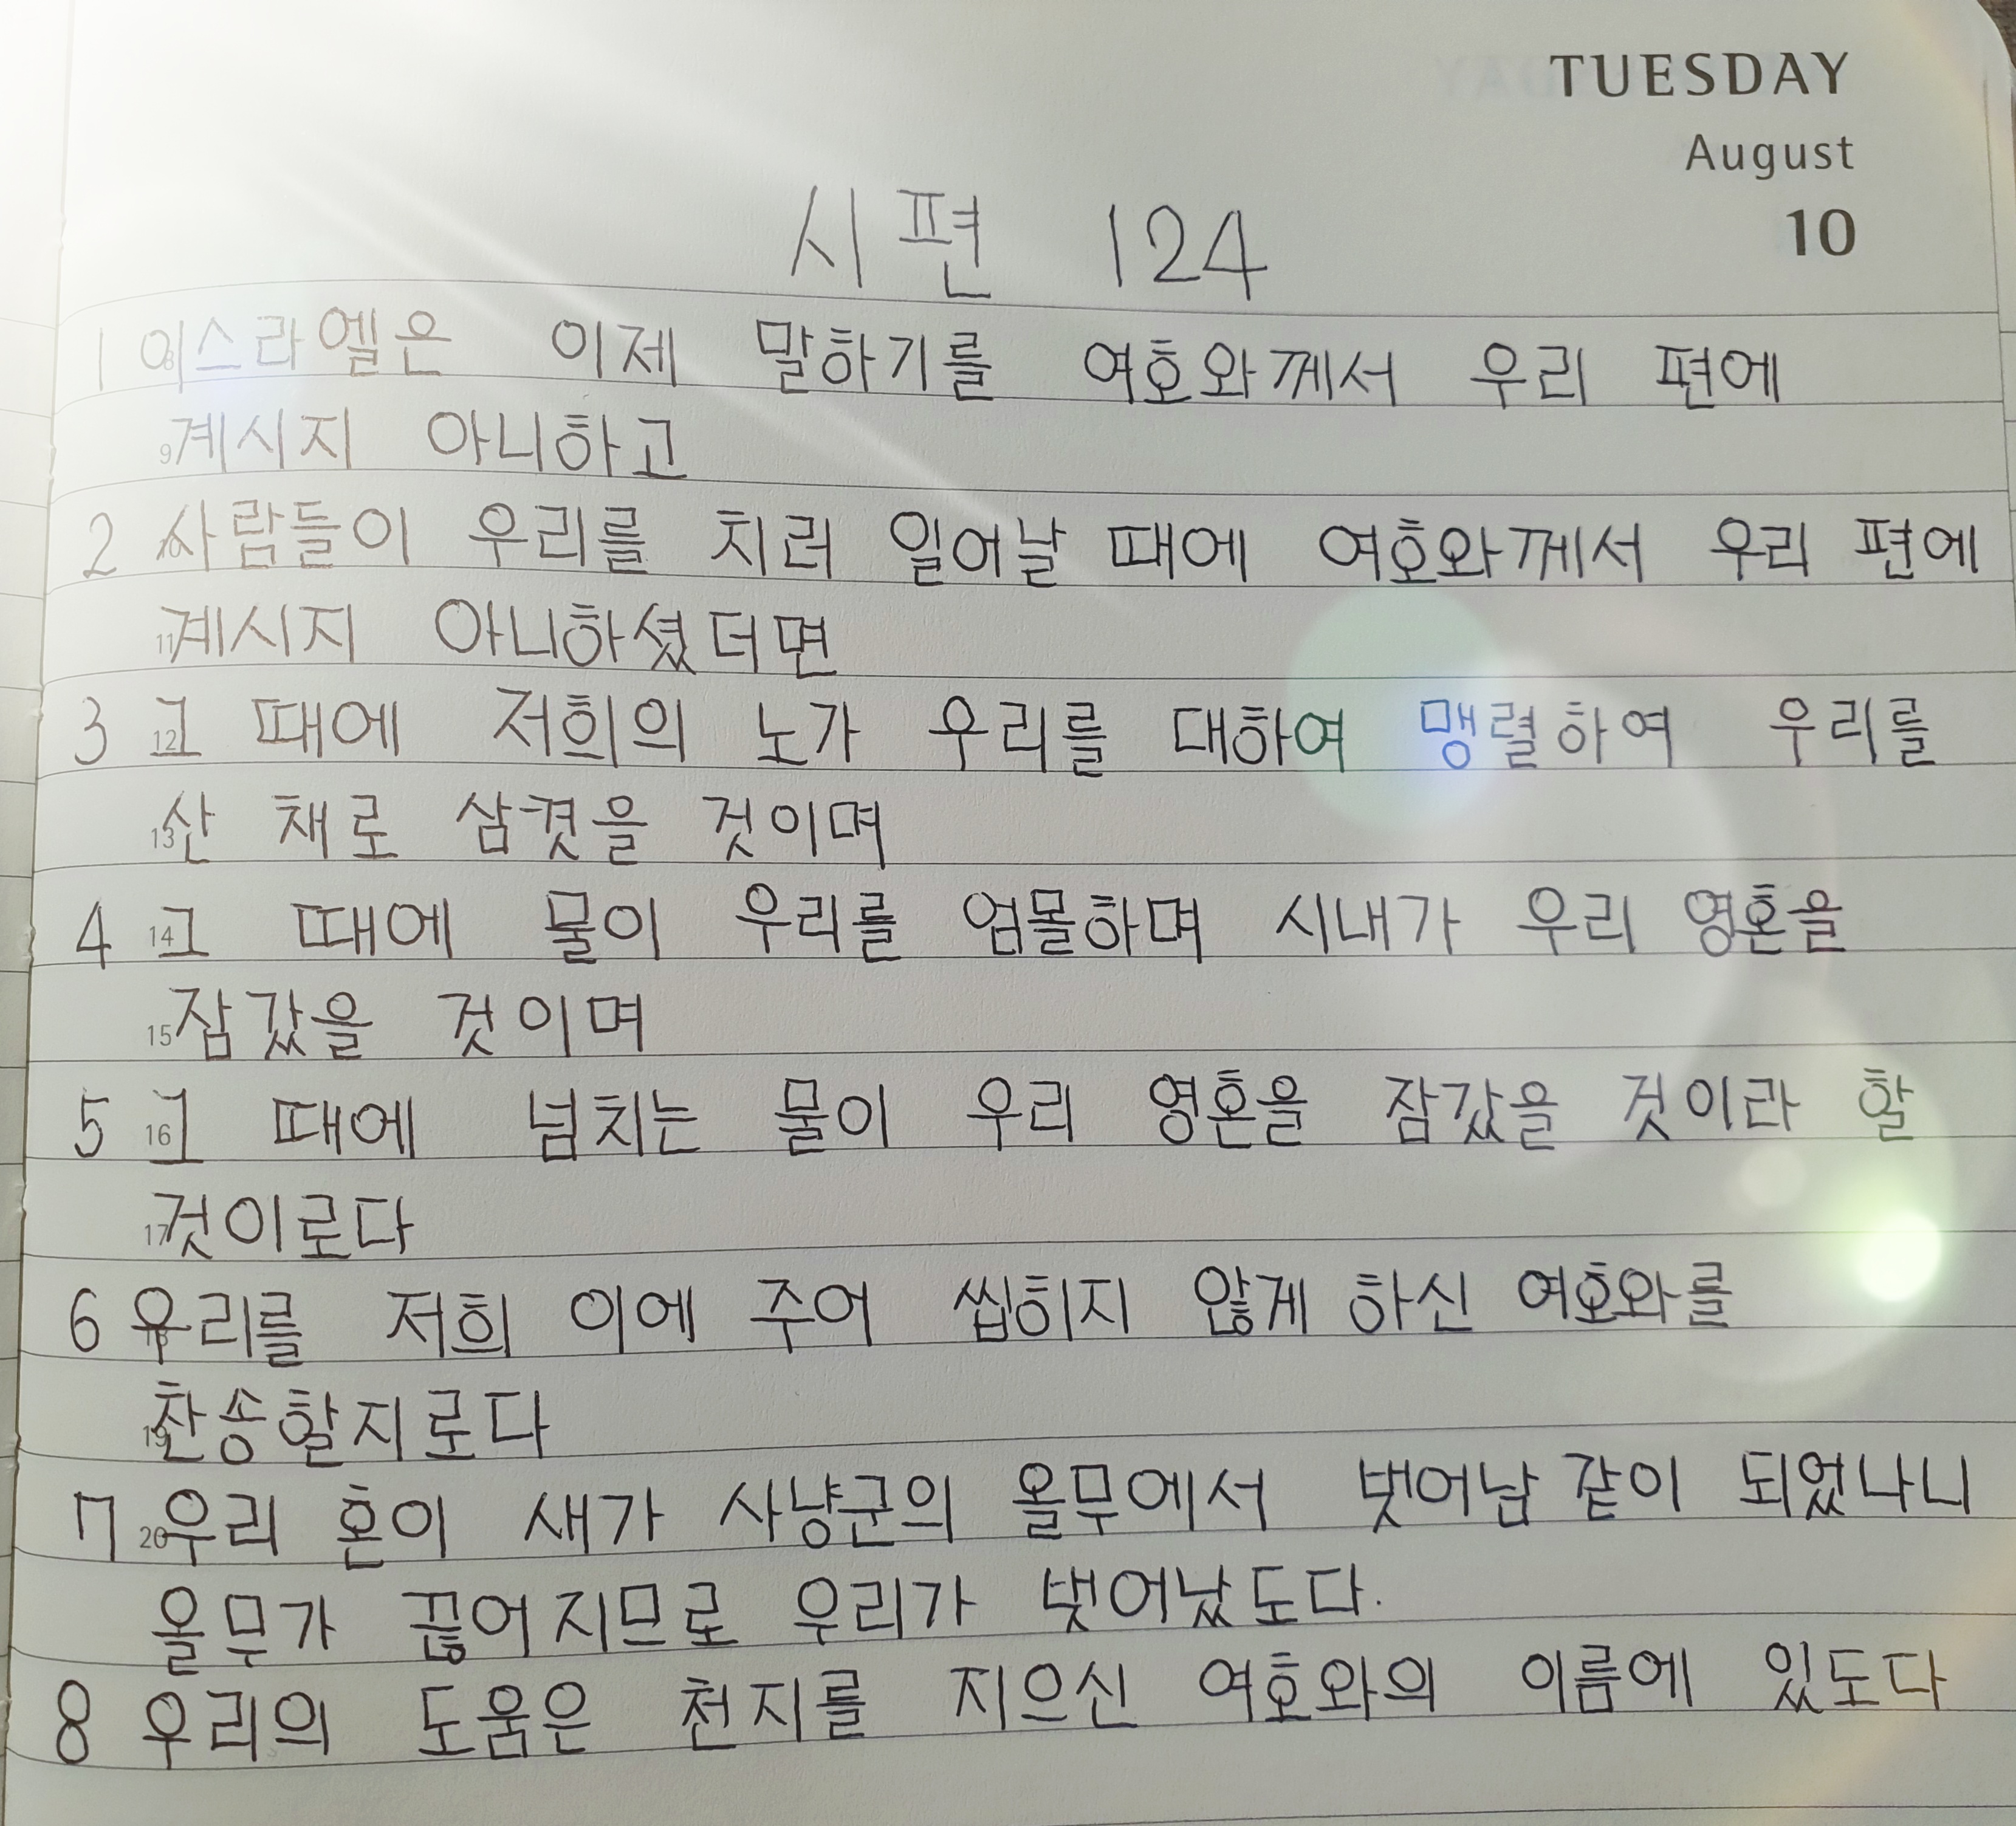 TUESDAY
August
10
시편 124
1 이스라엘은 이제 말하기를 여호와께서 우리 편에
9 계시지 아니하고
2 사람들이 우리를 치러 일어날 때에 여호와께서 우리 편에
11 계시지 아니하셨더면
3 12 그 때에 저희의 노가 우리를 대하여 맹렬하여 우리를
13 산 채로 삼켯을 것이며
4 14 그 때에 물이 우리를 엄몰하며 시내가 우리 영혼을
15 잠갔을 것이며
5 16 그 때에 넘치는 물이 우리 영혼을 잠갔을 것이라 할
17 것이로다
6 우리를 저희 이에 주어 씹히지 않게 하신 여호와를
19 찬송할지로다
7 20 우리 혼이 새가 사냥군의 올무에서 벗어남 같이 되었나니
올무가 끊어지므로 우리가 벗어났도다.
8 우리의 도움은 천지를 지으신 여호와의 이름에 있도다